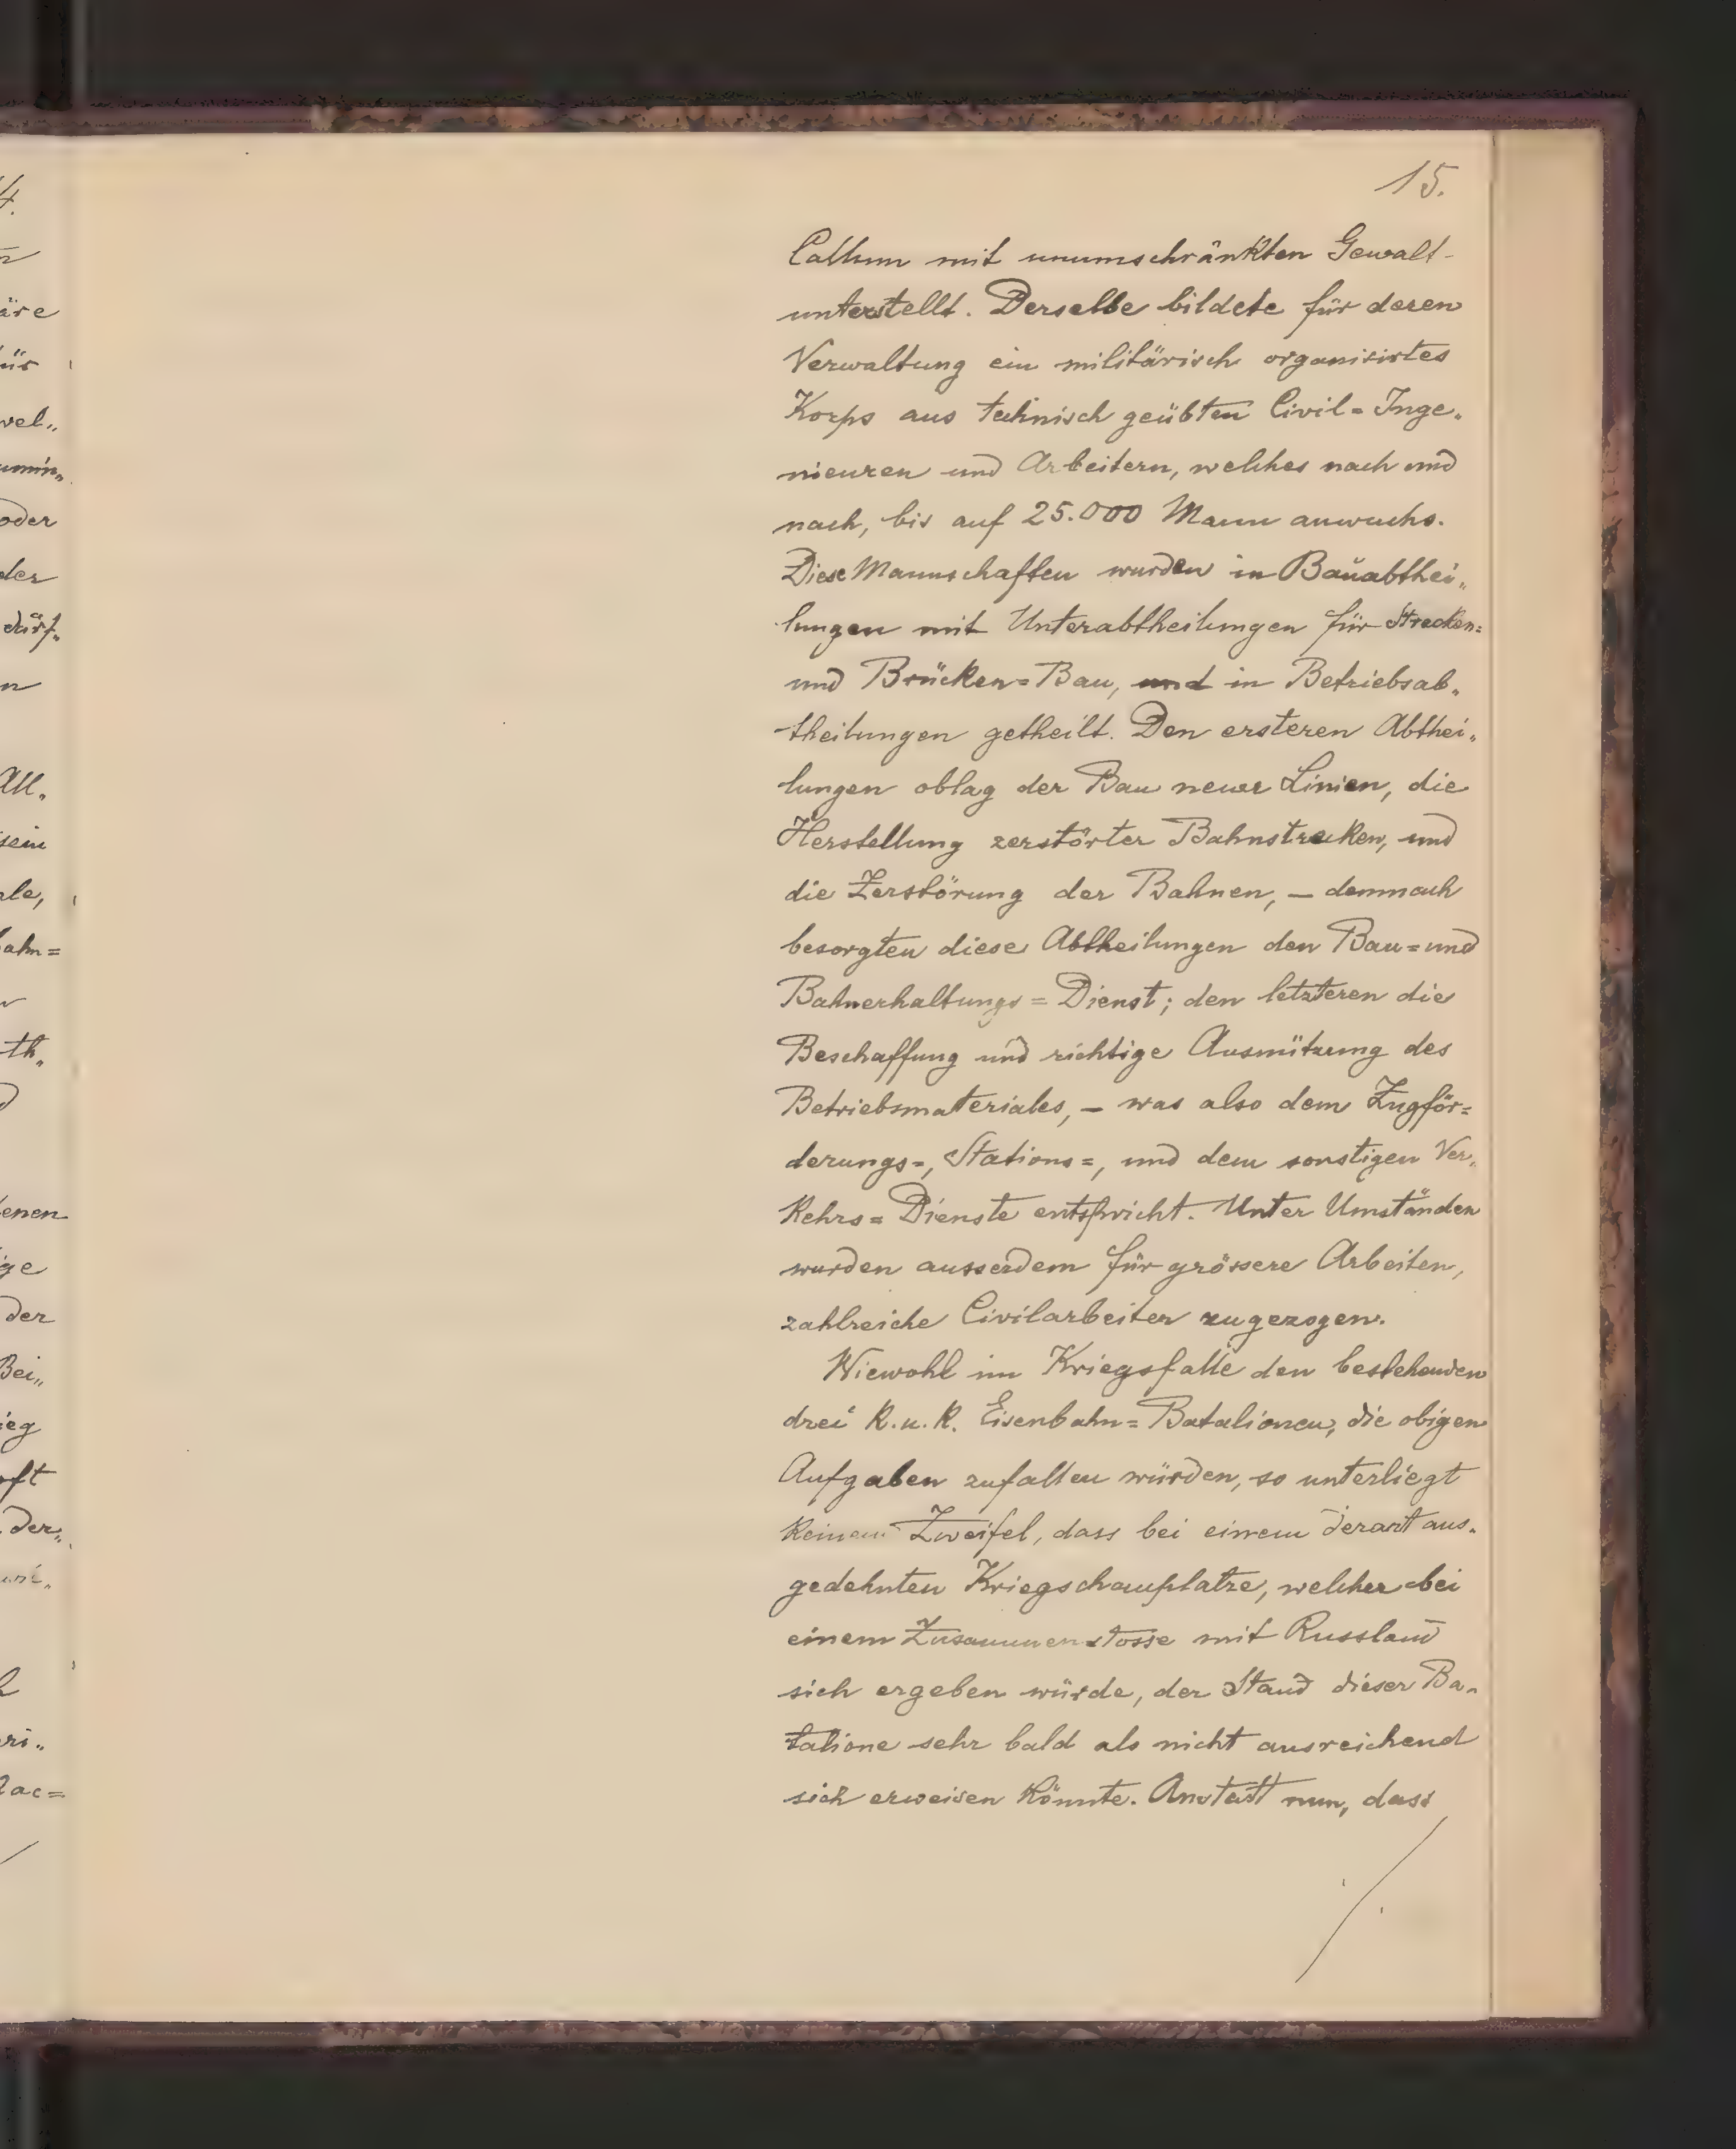 15.
Callum mit unumschränkten Gewalt-
unterstellt. Derselbe bildete für deren
Verwaltung ein militärisch organisirtes
Korps aus technisch geübten Civil=Inge„
nieuren und Arbeitern, welches nach und
nach, bis auf 25.000 Mann anwuchs.
Diese Mannschaften wurden in Bauabthei„
lungen mit Unterabtheilungen für Strecken=
und Brücken=Bau, und in Betriebsab„
theilungen getheilt. Den ersteren Abthei„
lungen oblag der Bau neuer Linien, die
Herstellung zerstörter Bahnstrecken, und
die Zerstörung der Bahnen, – demnach
besorgten diese Abtheilungen den Bau=und
Bahnerhaltungs=Dienst; den letzteren die
Beschaffung und richtige Ausnützung des
Betriebsmateriales, – was also dem Zugför=
derungs=, Stations=, und dem sonstigen Ver„
kehrs=Dienste entspricht. Unter Umständen
wurden ausserdem für grössere Arbeiten,
zahlreiche Civilarbeiter zugezogen.
Wiewohl im Kriegsfalle den bestehenden
drei k.u.k. Eisenbahn=Batalionen, die obigen
Aufgaben zufallen würden, so unterliegt
keinem Zweifel, dass bei einem derart aus„
gedehnten Kriegschauplatze, welcher bei
einem Zusammenstosse mit Russland
sich ergeben würde, der Stand dieser Ba„
talione sehr bald als nicht ausreichend
sich erweisen könnte. Anstatt nun, dass
4.
äre
für
wel„
oder
der
dürf„
All„
sein
ale,
bahn=
th„
enen
ige
der
Bei„
ieg
oft
der„
ri„